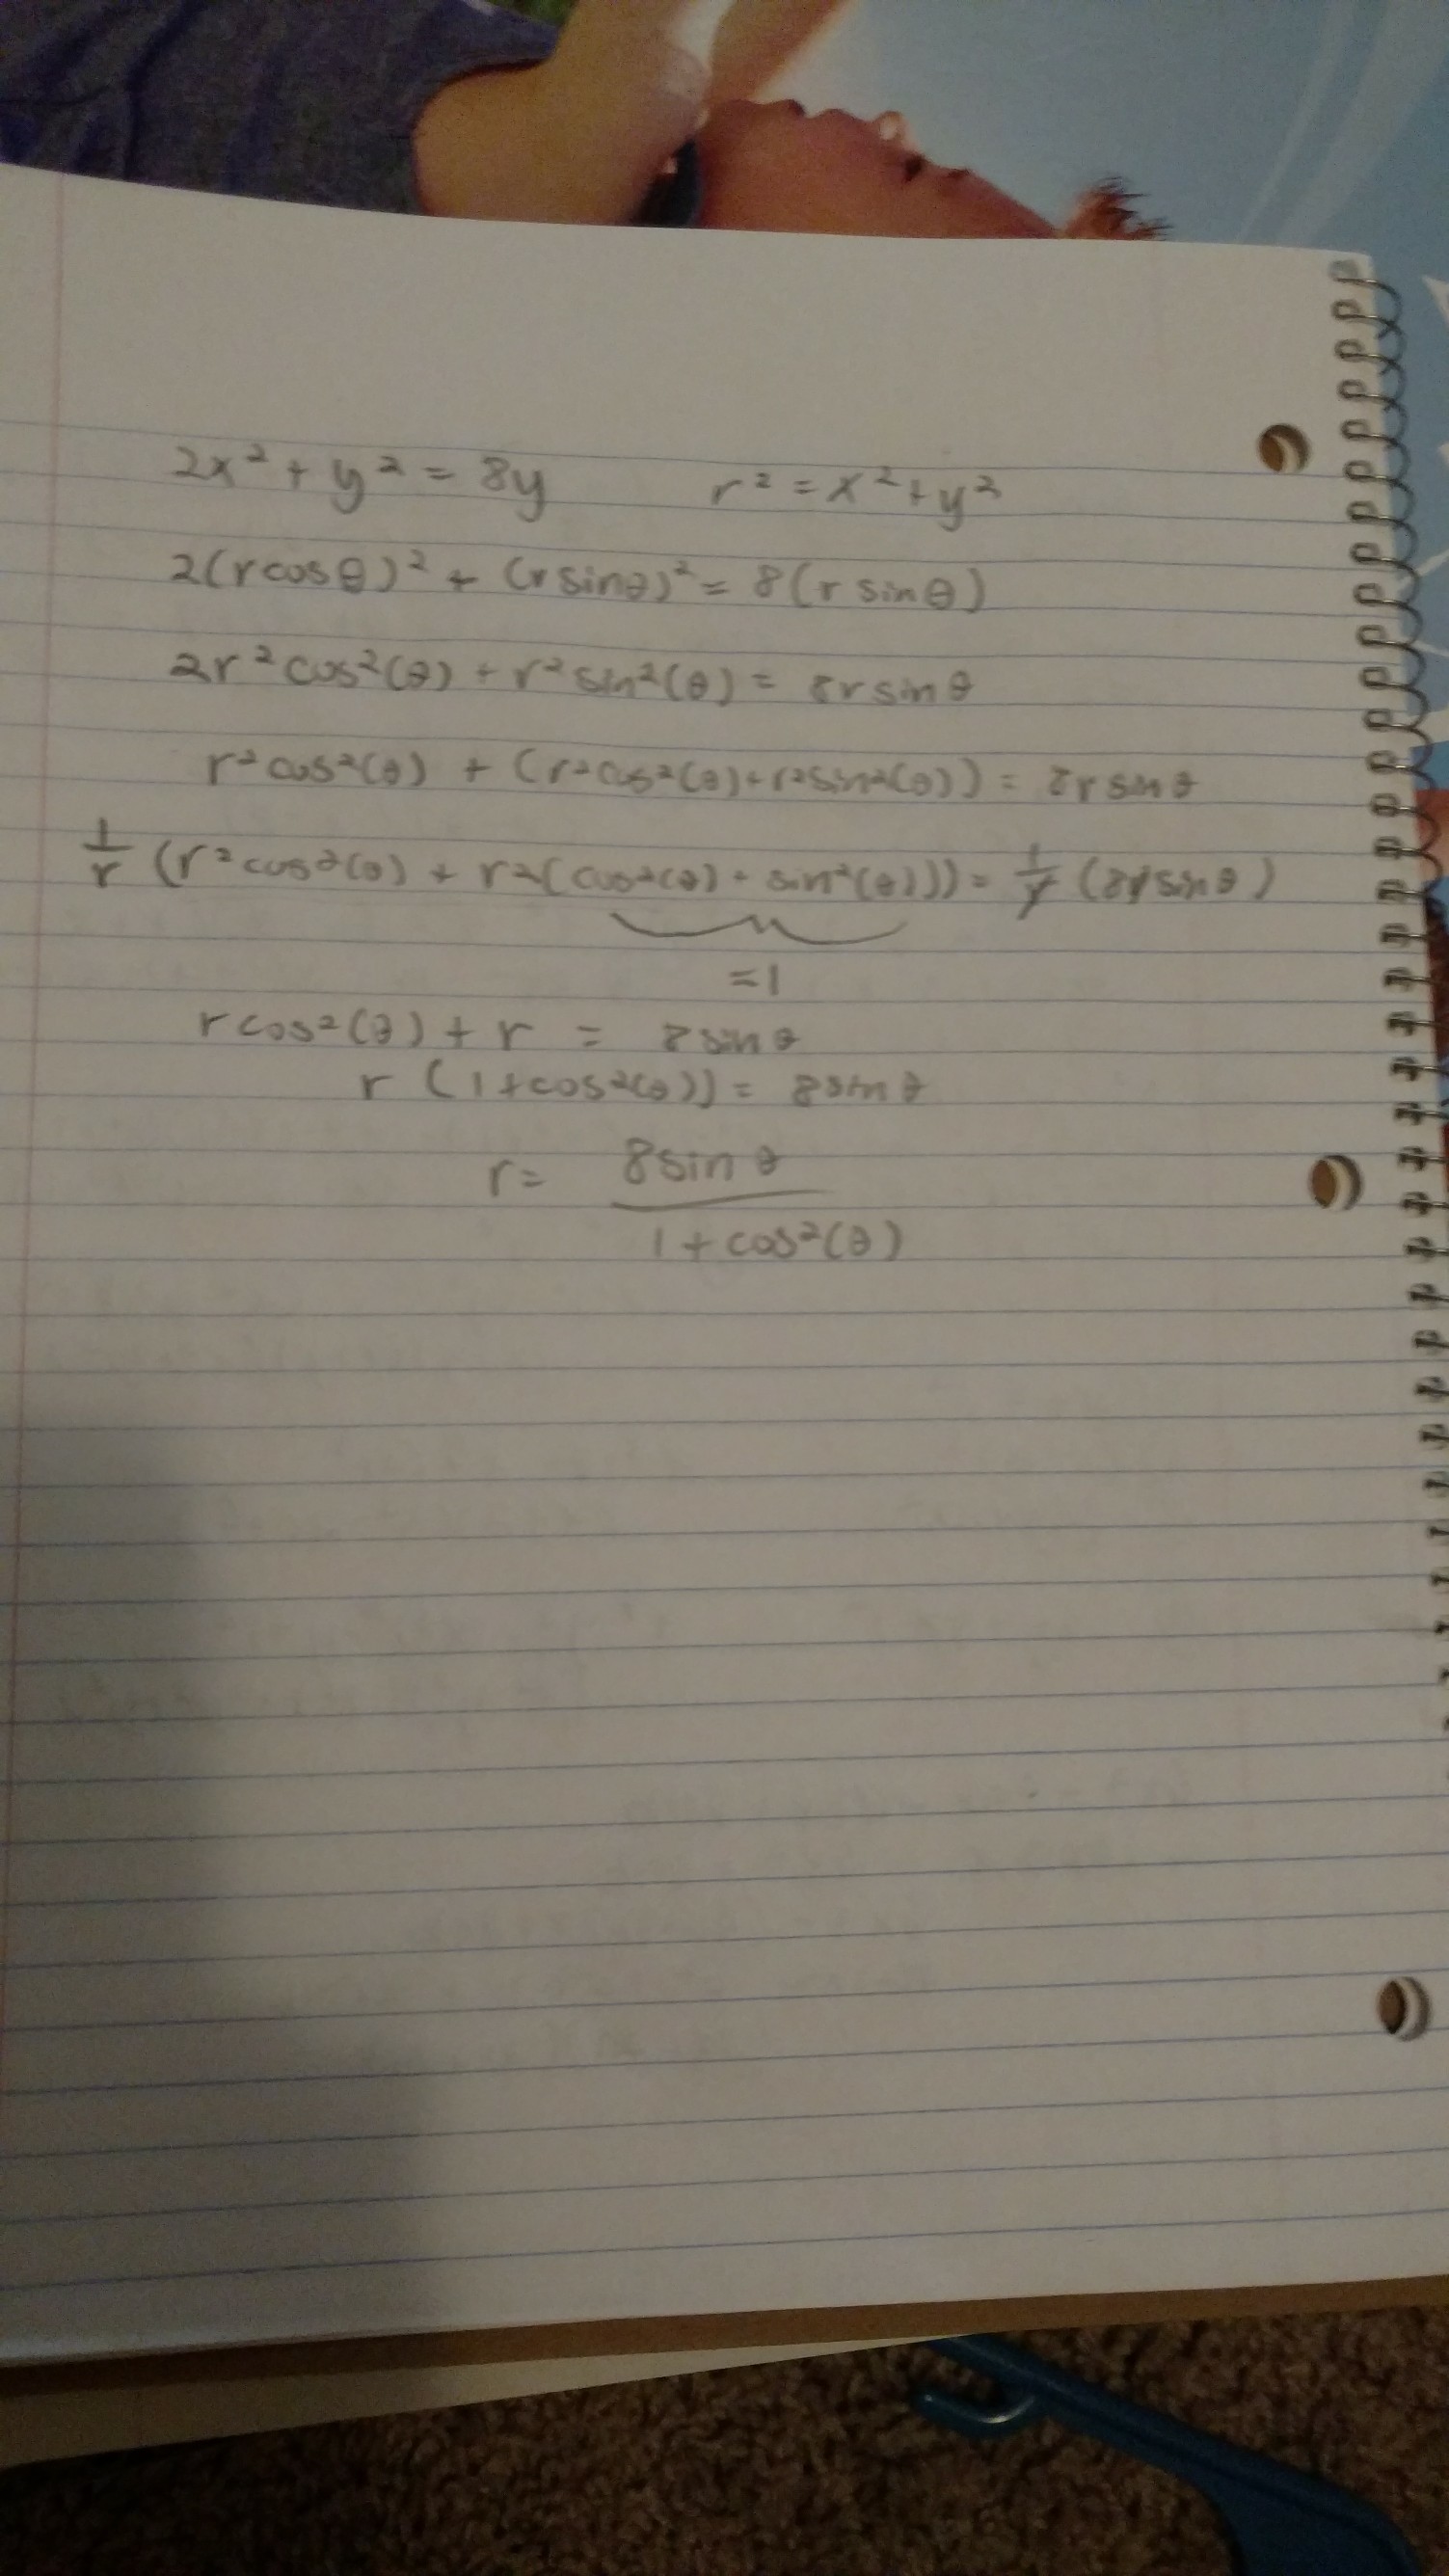 2x² + y² = 8y r² = x² + y²
2(r cos θ)² + (r sin θ)² = 8(r sin θ)
2r² cos²(θ) + r² sin²(θ) = 8r sin θ
r² cos²(θ) + (r² cos²(θ) + r² sin²(θ)) = 8r sin θ
1/r (r² cos²(θ) + r²(cos²(θ) + sin²(θ))) = 1/r (8r sin θ)
=1
r cos²(θ) + r = 8 sin θ
r (1 + cos²(θ)) = 8 sin θ
r = 8 sin θ / 1 + cos²(θ)